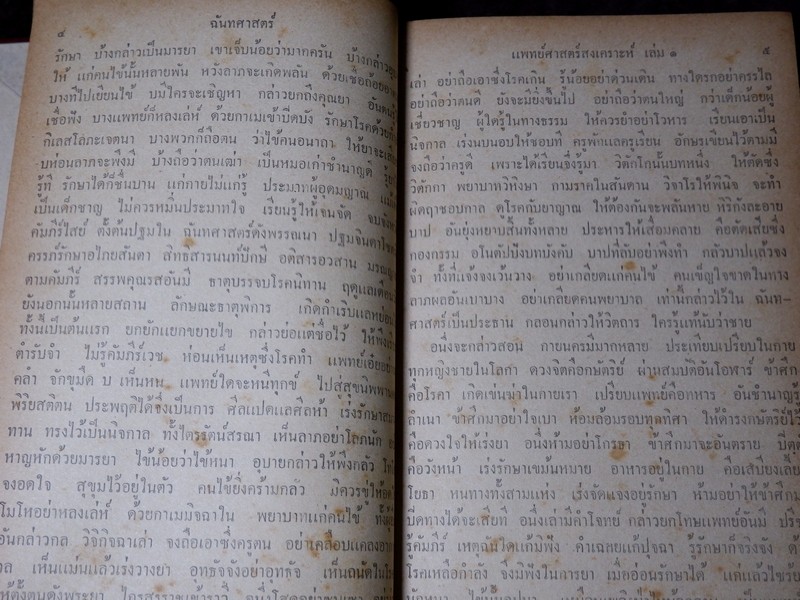 ๘
ฉันทศาสตร์
รักษา บ้างกล่าวเป็นมารยา เขาเจ็บน้อยว่ามากครัน บ้างกล่าว
ให้ แก่คนไข้นั้นหลายพัน หวังลาภจะเกิดพลัน ด้วยเชื่อถ้อย
บางทีไปเยียนไข้ บมีใครจะเชิญหา กล่าวยกถึงคุณยา อัน
เชื่อฟัง บางแพทย์ก็หลงเล่ห์ ด้วยกาเมเข้าปิดบัง รักษาโรคด้วย
กิเลสโลภะเจตนา บางพวกก็ถือตน ว่าใช้คนอนาถา ให้ยาจะ
บห่อนลาภจะพึงมี บ้างถือว่าตนเฒ่า เป็นหมอเก่าชำนาญดี
รู้ที่ รักษาได้ก็ชื่นบาน แก่กายไม่แก่รู้ ประมาทผู้อุดมญาณ
เป็นเด็กชาญ ไม่ควรหมิ่นประมาทใจ เรียนรู้ให้เจนจัด
คัมภีร์ไสย์ ตั้งต้นปฐมใน ฉันทศาสตร์ดังพรรณนา ปฐมจินดา
ครรภ์รักษาอภัยสันตา สิทธิสารนนท์ปักษี อติสารอวสาน
ตามคัมภีร์ สรรพคุณรสอันมี ธาตุบรรจบโรคนิทาน ฤดูแลเดือน
ยังนอกนั้นหลายสถาน ลักษณะธาตุพิการ เกิดกำเริบแลหย่อน
ทั้งนี้เป็นต้นแรก ยกยักแยกขยายไข กล่าวย่อแต่ชื่อไว้ ให้พึง
ตำรับจำ ไม่รู้คัมภีร์เวช ห่อนเห็นเหตุซึ่งโรคทำ แพทย์เอ๋ย
คลำ จักขุมืด บ เห็นหน แพทย์ใดจะหนีทุกข์ ไปสู่สุขนิพพาน
พิริยสติตน ประพฤติได้จึงเป็นการ ศีลแปดแลศีลห้า เร่งรักษา
ทาน ทรงไว้เป็นนิจกาล ทั้งไตรรัตน์สรณา เห็นลาภอย่าโลภนัก
หาญหักด้วยมารยา ไข้น้อยว่าไข้หนา อุบายกล่าวให้พึงกลัว
จงอดใจ สุขุมไว้อยู่ในตัว คนไข้ยิ่งคร้ามกลัว มิควรขู่ให้
โมโหอย่าหลงเล่ห์ ด้วยกาเมมิจฉาใน พยาบาทแก่คนไข้
อันกล่าวกล วิจิกิจฉาเล่า จงถือเอาซึ่งครูตน อย่าเคลือบแคลง
ล เห็นแม่นแล้วเร่งวางยา อุทธัจจังอย่าอุทธัจ เห็นถนัดใน
แพทย์ศาสตร์สงเคราะห์ เล่ม ๑
๕
เล่า อย่าถือเอาซึ่งโรคเกิน รู้น้อยอย่าด่วนเดิน ทางใดรกอย่าครรไล
อย่าถือว่าตนดี ยังจะมียิ่งขึ้นไป อย่าถือว่าตนใหญ่ กว่าเด็กน้อยผู้
เชี่ยวชาญ ผู้ใดรู้ในทางธรรม ให้ควรยำอย่าโวหาร เรียนเอาเป็น
นิจกาล เร่งนบนอบให้ชอบที่ ครูพักแลครูเรียน อักษรเขียนไว้ตามมี
จงถือว่าครูดี เพราะได้เรียนจึงรู้มา วิตักโกนั้นบทหนึ่ง ให้ตัดซึ่ง
วิตักกา พยาบาทวิหิงษา กามราคในสันดาน วิจาโรให้พินิจ จะทำ
ผิดฤๅชอบกาล ดูโรคกับยาญาณ ให้ต้องกันจะพลันหาย หิริกังละอาย
บาป อันยุ่งหยาบสิ้นทั้งหลาย ประหารให้เสื่อมคลาย คือตัดเสียซึ่ง
กองกรรม อโนตัปปังบทบังคับ บาปที่ลับอย่าพึงทำ กลัวบาปแล้วจง
จำ ทั้งที่แจ้งจงเว้นวาง อย่าเกียดแก่คนไข้ คนเข็ญใจขาดในทาง
ลาภผลอันเบาบาง อย่าเกียดคนพยาบาล เท่านี้กล่าวไว้ใน ฉันท-
ศาสตร์เป็นประธาน กลอนกล่าวให้วิตถาร ใครรู้แท้นับว่าชาย
อนึ่งจะกล่าวสอน กายนครมีมากหลาย ประเทียบเปรียบในกาย
ทุกหญิงชายในโลกา ดวงจิตคือกษัตริย์ ผ่านสมบัติอันโอฬาร์ ข้าศึก
คือโรคา เกิดเข่นฆ่าในกายเรา เปรียบแพทย์คือทหาร อันชำนาญรู้
ลำเนา ข้าศึกมาอย่าใจเบา ห้อมล้อมรอบทุกทิศา ให้ดำรงกษัตริย์ไว้
คือดวงใจให้เร่งยา อนึ่งห้ามอย่าโกรธา ข้าศึกมาจะอันตราย
คือวังหน้า เร่งรักษาเขม้นหมาย อาหารอยู่ในกาย คือเสบียงเลี้ยง
โยธา หนทางทั้งสามแห่ง เร่งจัดแจงอยู่รักษา ห้ามอย่าให้ข้าศึก
ปิดทางได้จะเสียที อนึ่งเล่ามีคำโจทย์ กล่าวยกโทษแพทย์อันมี
รู้คัมภีร์ เหตุฉันใดแก้มิฟัง คำเฉลยแก้ปุจฉา รู้รักษาก็จริงจัง
โรคเหลือกำลัง จึงมิฟังในการยา เมื่ออ่อนรักษาได้